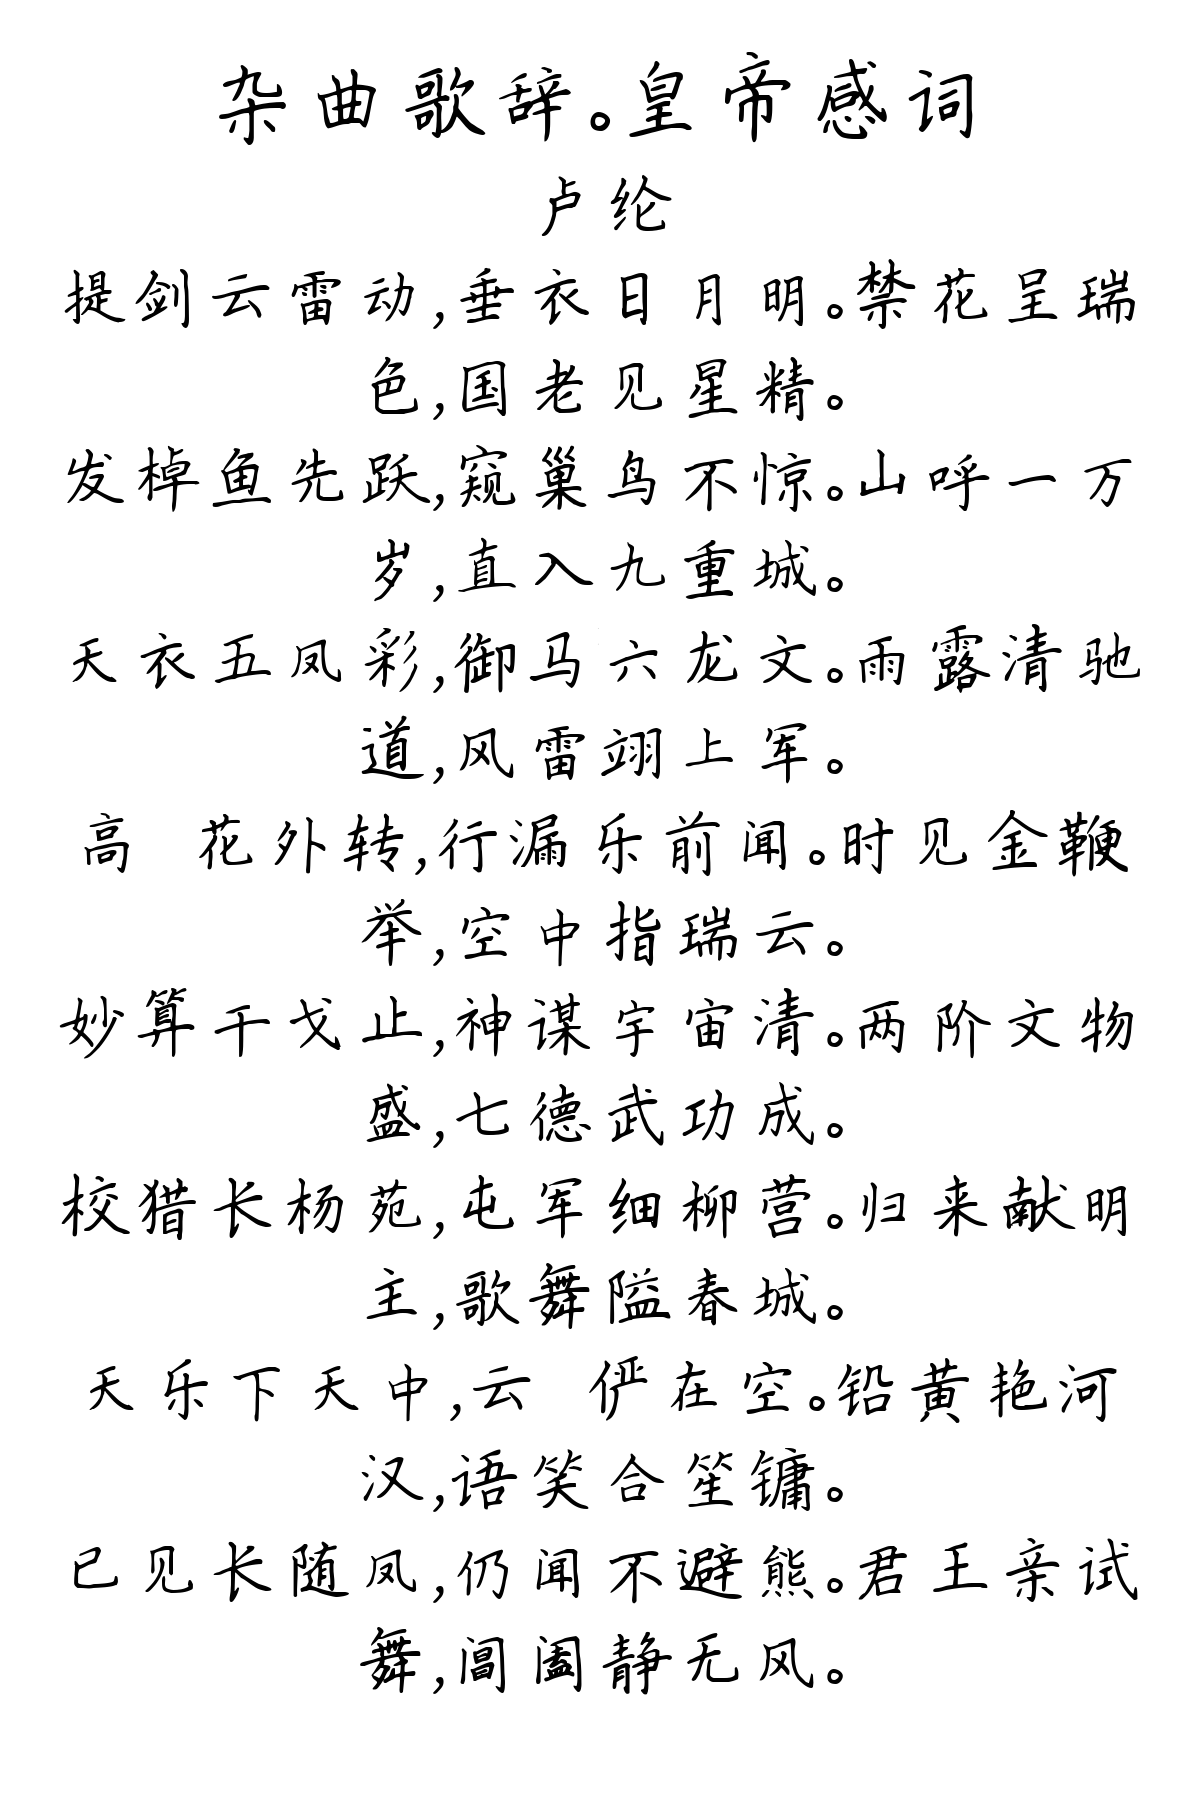 杂曲歌辞。皇帝感词
卢纶
提剑云雷动,垂衣日月明。禁花呈瑞
色,国老见星精。
发棹鱼先跃,窥巢鸟不惊。山呼一万
岁,直入九重城。
天衣五凤彩,御马六龙文。雨露清驰
道,风雷翊上军。
高 花外转,行漏乐前闻。时见金鞭
举,空中指瑞云。
妙算干戈止,神谋宇宙清。两阶文物
盛,七德武功成。
校猎长杨苑,屯军细柳营。归来献明
主,歌舞隘春城。
天乐下天中,云 俨在空。铅黄艳河
汉,语笑合笙镛。
已见长随凤,仍闻不避熊。君王亲试
舞,阊阖静无风。